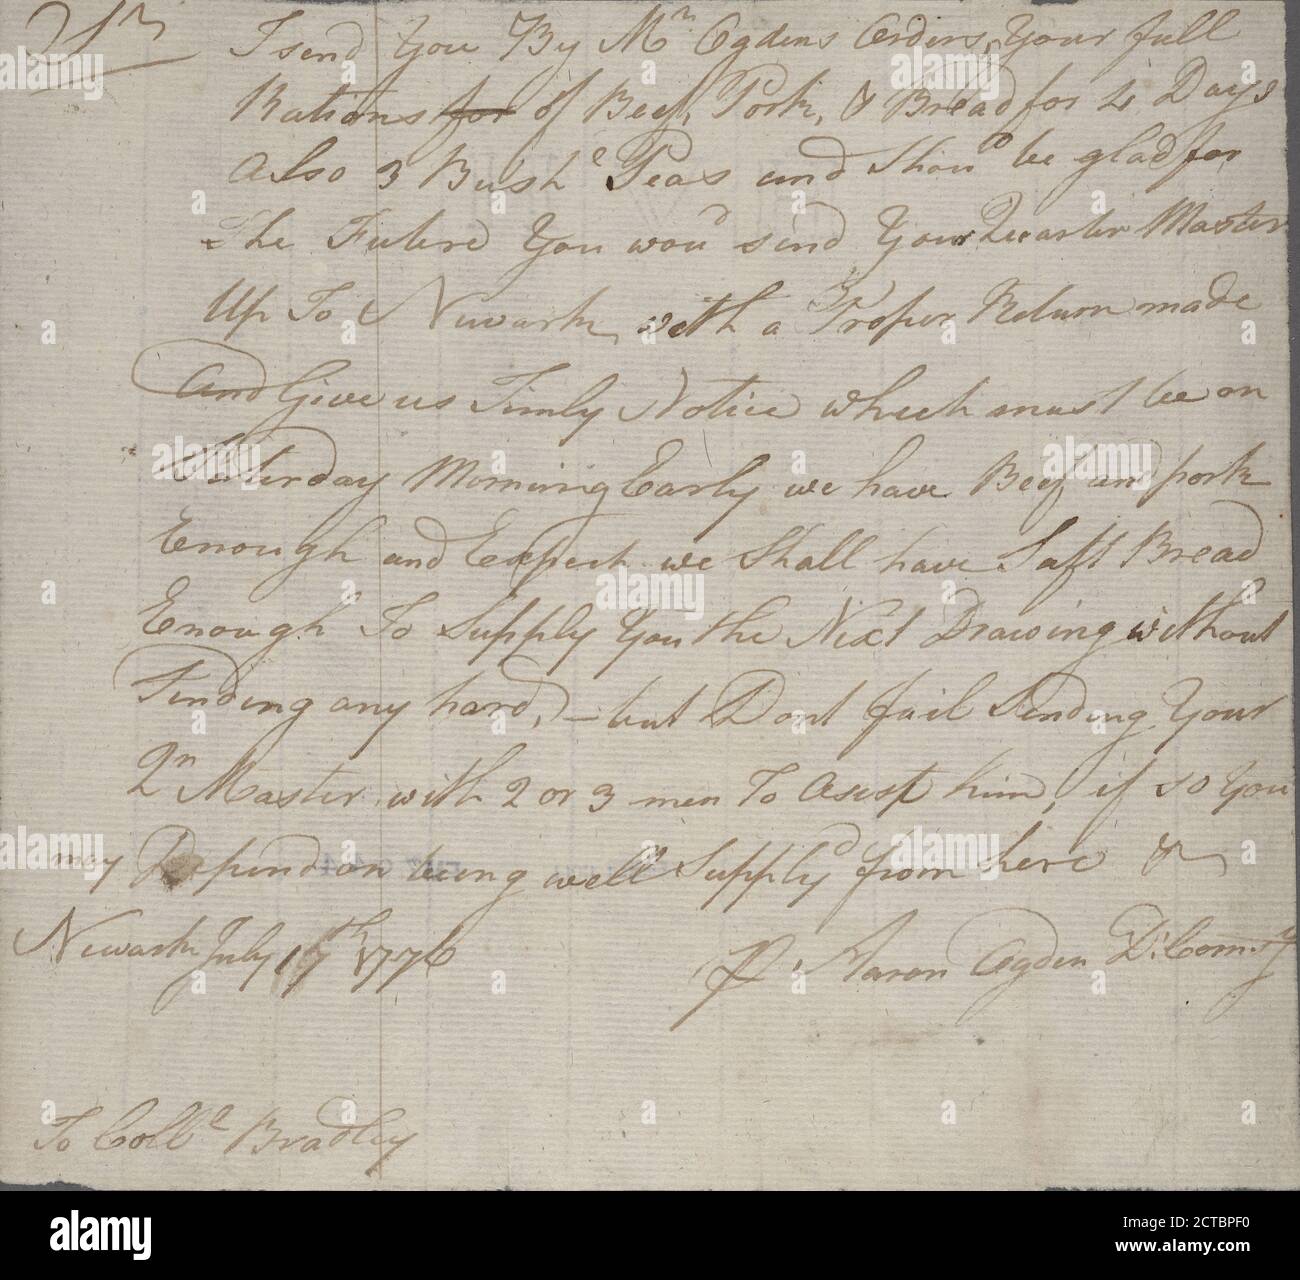 Sr
I send You By Mr Ogdens Orders, Your full
Rations for of Beef, Pork, & Bread for 4 Days
Also 3 Bushe Peas and Shoud be glad for
The Future You woud send Your Quarter Master
Up To Newark with a Proper Return made
and Give us Timly Notice which must be on
Saturday Morning Early we have Beef and pork
Enough and Expect we Shall have Saft Bread
Enough To Supply You the Next Drawing without
Finding any hard, - but Dont fail Sending Your
Qr Master with 2 or 3 men To Asist him, if so You
may Depend on being well Supplyd from here &
Newark July 17th 1776
P Aaron Ogden D: Comsy
To Colle Bradley
alamy
Image ID: 2CTBPF0
www.alamy.com